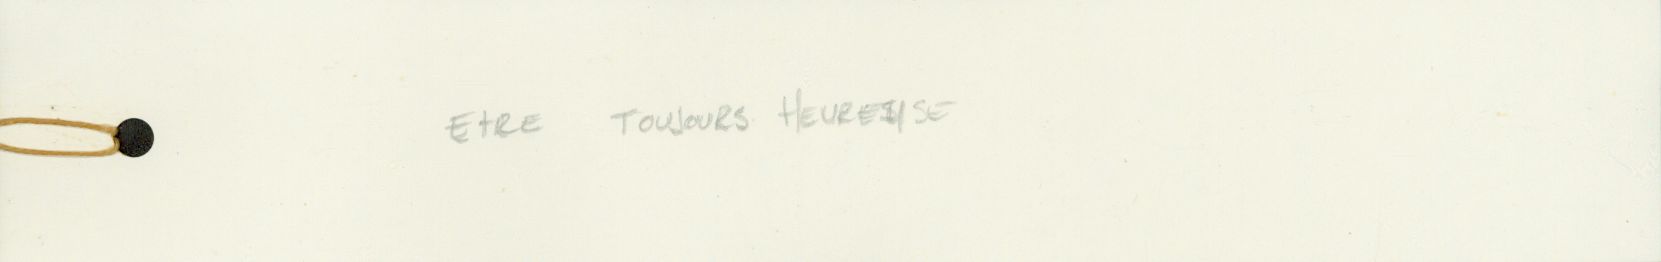 ETRE TOUJOURS HEUREUSE